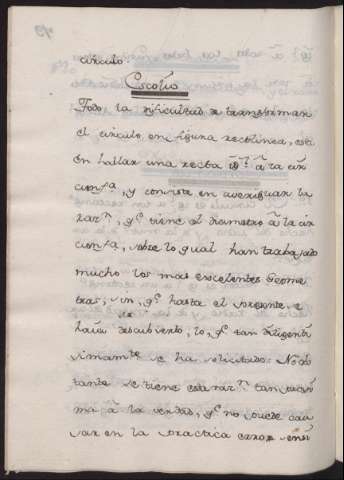 circulo.
Escolio
Toda la dificultad de transformar
el circulo, en figura rectilinea, está
en hallar una recta à la cir
conf.ª, y consiste en averiguar la
raz.ⁿ, q.ᵉ tiene el diametro à la cir
conf.ª, sobre lo qual han trabajado
mucho los mas excelentes Geome
tras, sin q.ᵉ hasta el presente, se
haia descubierto, lo q.ᵉ tan diligenti
simamente se ha solicitado: No obs
tante se tiene esta raz.ⁿ tan proxi
ma à la verdad, q.ᵉ no puede cau
sar en la practica error sensi